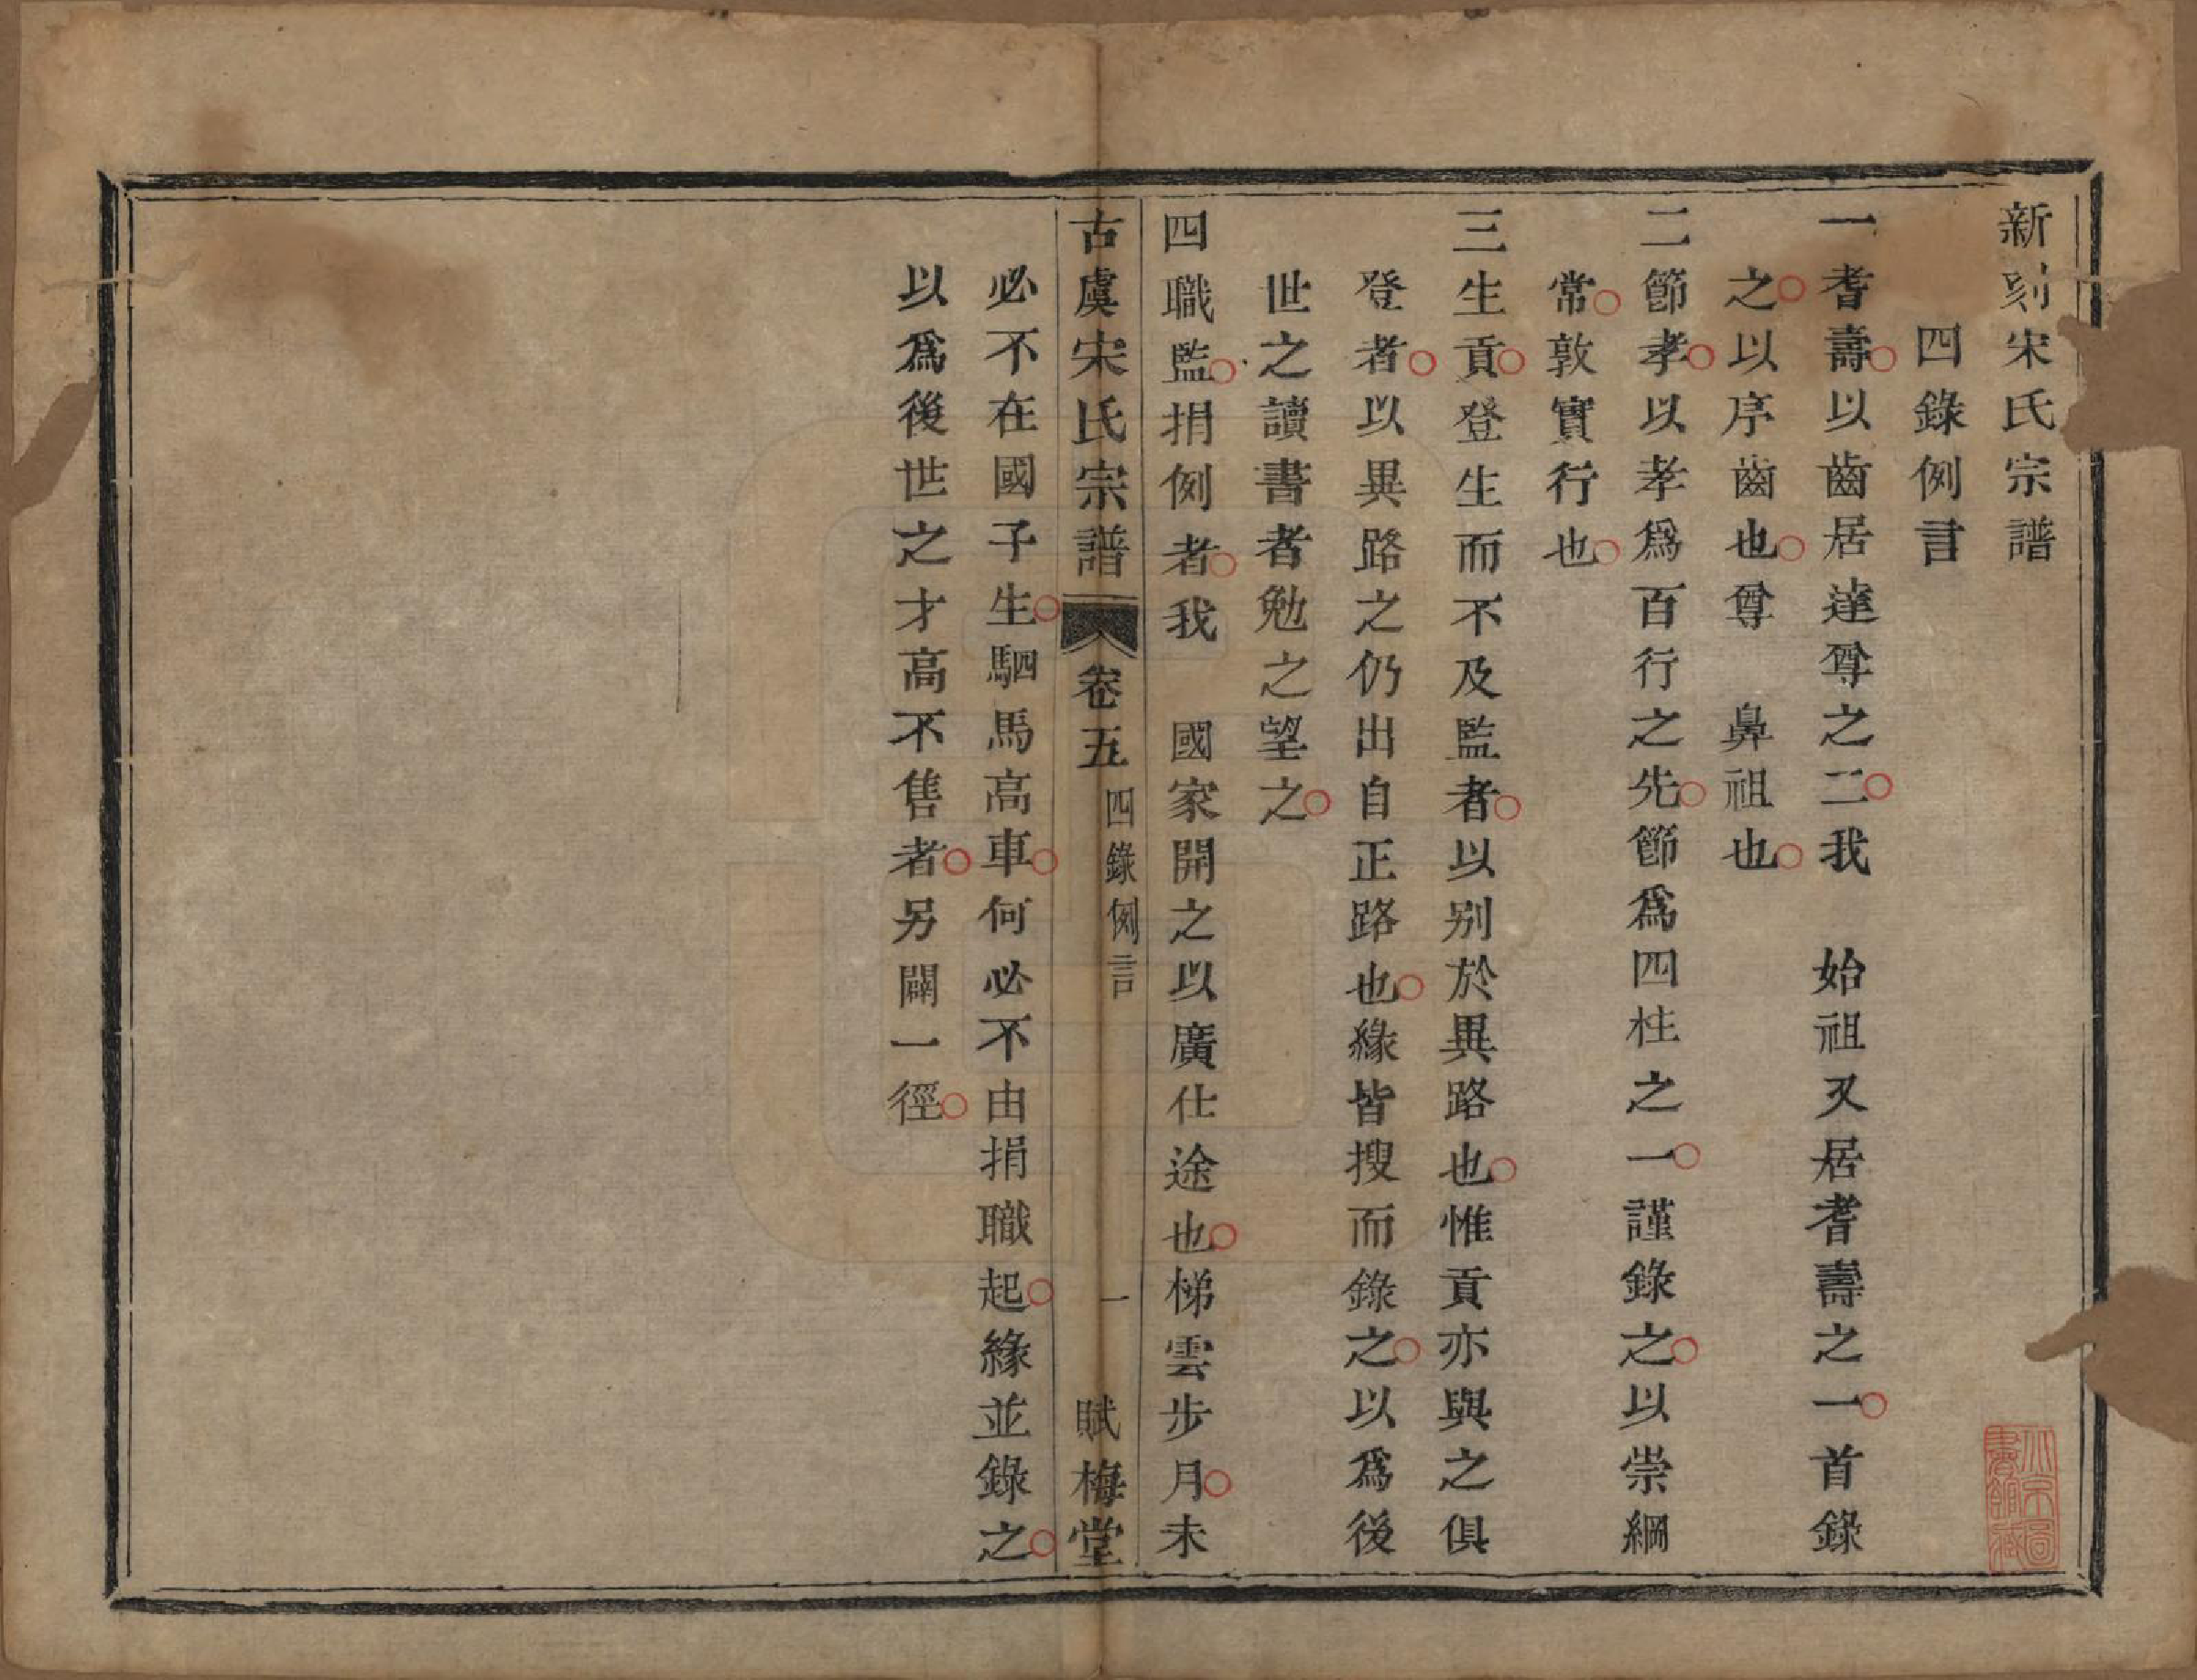 新刻宋氏宗譜
四錄例言
一耆壽○以齒居達尊之二○我　始祖又居耆壽之一○首錄
之○以序齒也○尊　鼻祖也○
二節孝○以孝爲百行之先○節爲四柱之一○謹錄之○以崇綱
常○敦實行也○
三生貢○登生而不及監者○以别於異路也○惟貢亦與之俱
登者○以異路之仍出自正路也○緣皆搜而錄之○以爲後
世之讀書者勉之望之○
四職監○捐例者○我　國家開之以廣仕途也○梯雲步月○未
古虞宋氏宗譜　卷五　四錄例言　一　賦梅堂
必不在國子生○駟馬高車○何必不由捐職起○緣並錄之○
以爲後世之才高不售者○另闢一徑○